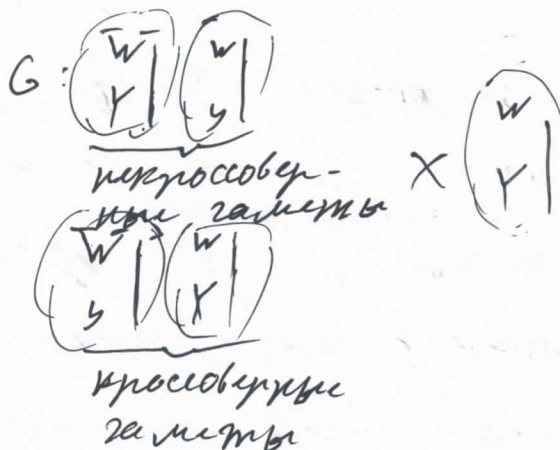 G: W| w|
Y| y|
некроссовер-
ные гаметы
× w
Y|
W| w|
y| Y|
кроссоверные
гаметы